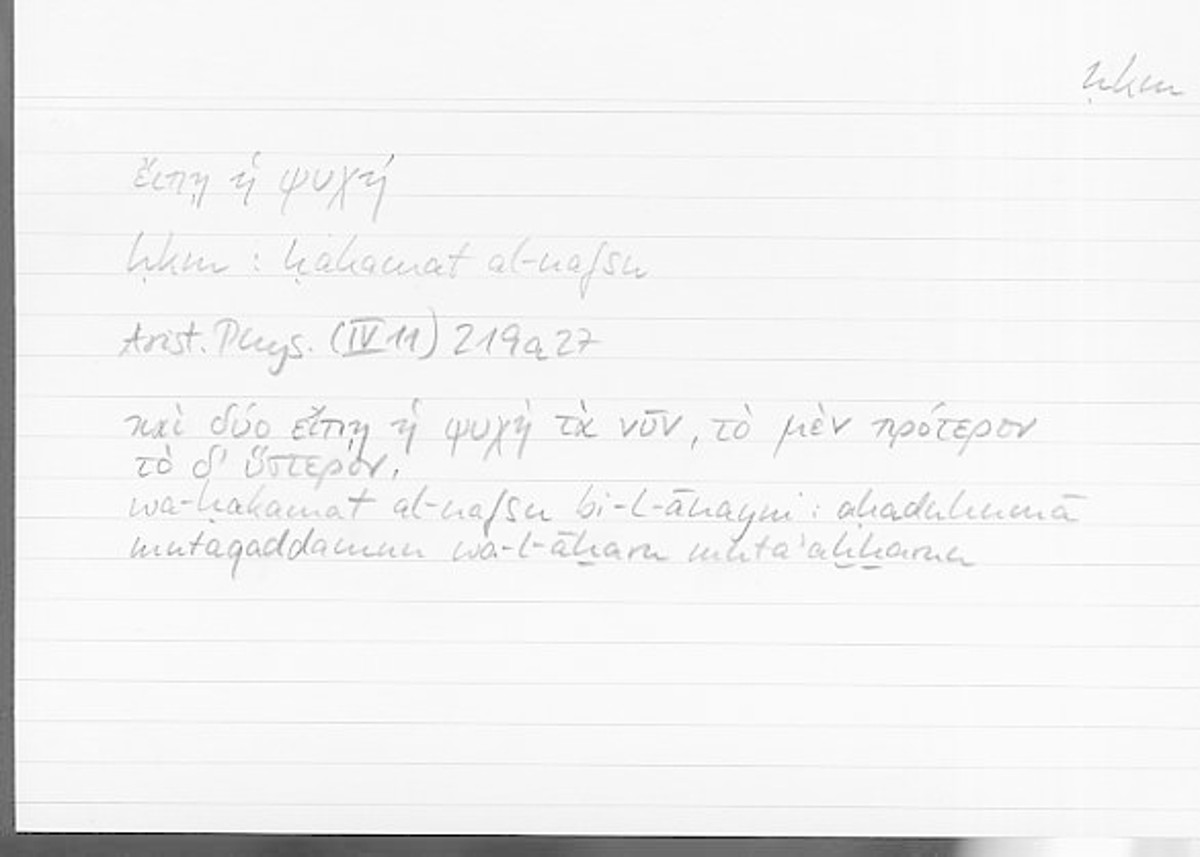 ḥkm
εἴπῃ ἡ ψυχή
ḥkm : ḥakamat al-nafsu
Arist. Phys. (IV 11) 219a27
καὶ δύο εἴπῃ ἡ ψυχὴ τὰ νῦν, τὸ μὲν πρότερον
τὸ δ' ὕστερον.
wa-ḥakamat al-nafsu bi-l-ānayni : aḥaduhumā
mutaqaddamun wa-l-āḫaru muta'aḫḫarun